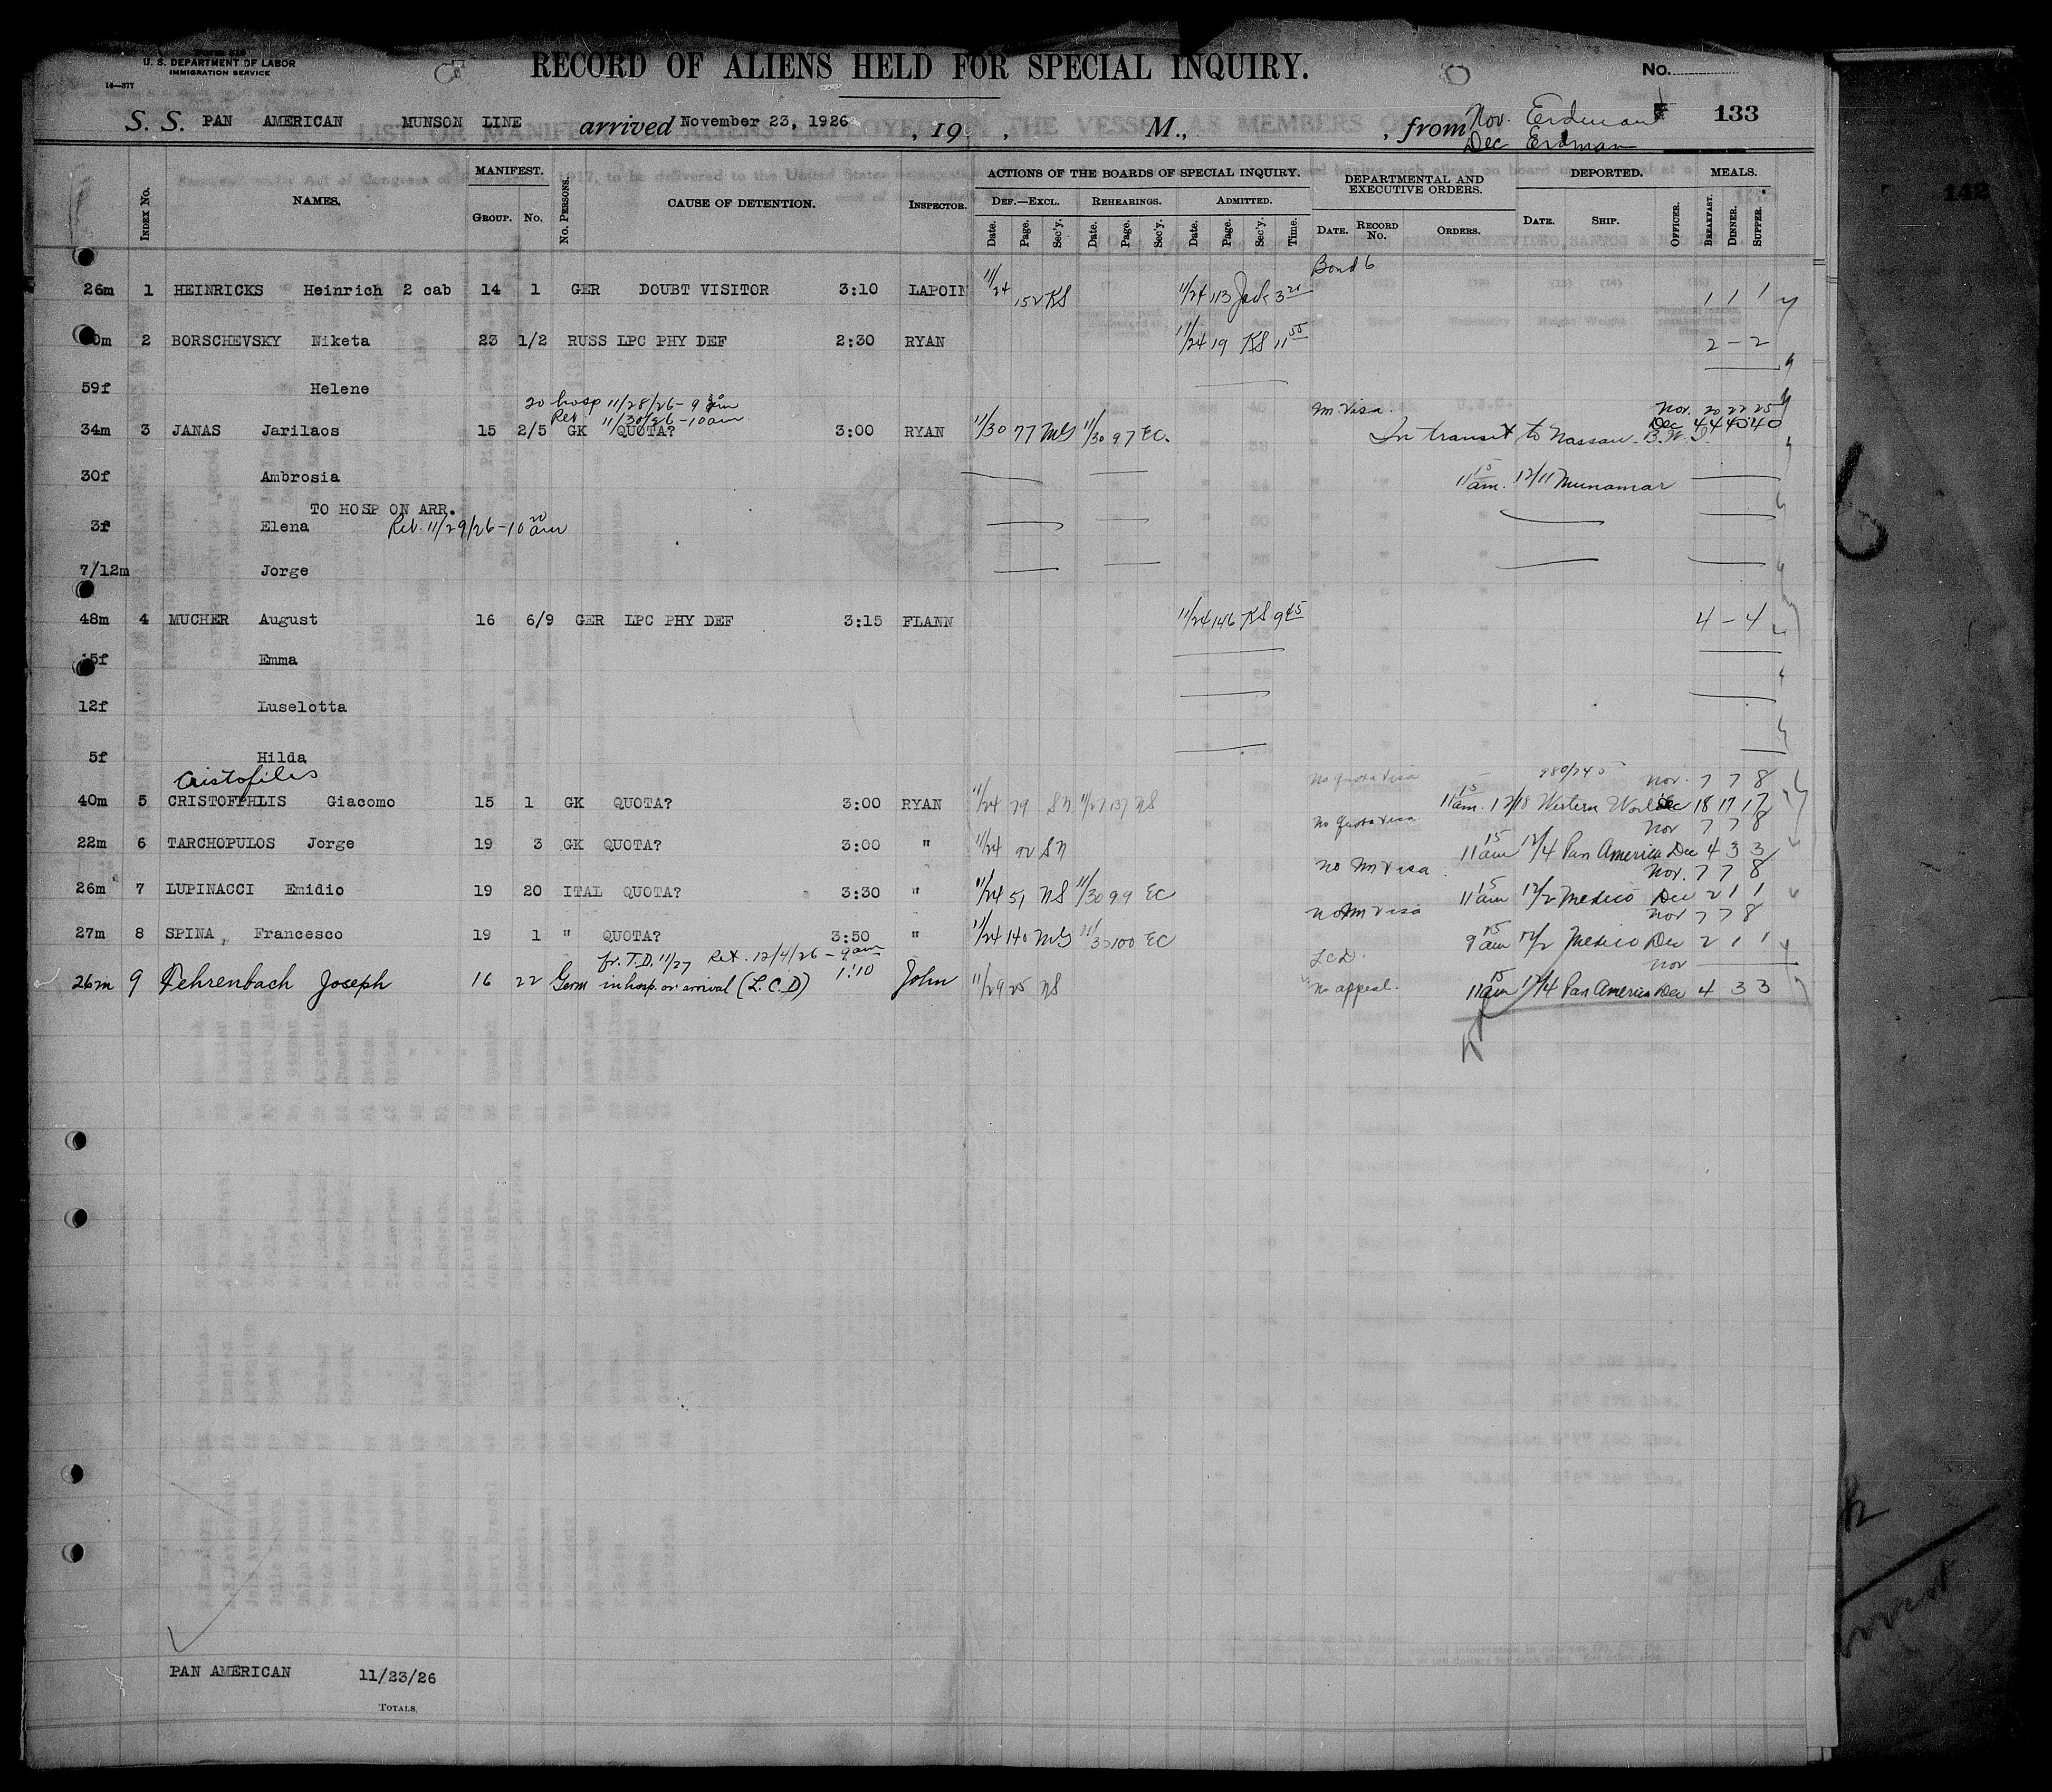 Form 616
U. S. DEPARTMENT OF LABOR
IMMIGRATION SERVICE
14—377
RECORD OF ALIENS HELD FOR SPECIAL INQUIRY.
No.
S. S. PAN AMERICAN MUNSON LINE arrived November 23, 1926, 19 , M., , from Nov. Erdman 133
Dec Erdman
142
INDEX No. NAMES. MANIFEST. GROUP. No. No. PERSONS. CAUSE OF DETENTION. INSPECTOR. ACTIONS OF THE BOARDS OF SPECIAL INQUIRY. DEF.—EXCL. Date. Page. Sec'y. REHEARINGS. Date. Page. Sec'y. ADMITTED. Date. Page. Sec'y. Time. DEPARTMENTAL AND EXECUTIVE ORDERS. DATE. RECORD No. ORDERS. DEPORTED. DATE. SHIP. OFFICER. MEALS. BREAKFAST. DINNER. SUPPER.
Bond 6
26m 1 HEINRICKS Heinrich 2 cab 14 1 GER DOUBT VISITOR 3:10 LAPOIN 11/24 152 KS 11/24 113 Jack 3 20 1 1 1
0m 2 BORSCHEVSKY Niketa 23 1/2 RUSS LPC PHY DEF 2:30 RYAN 11/24 19 KS 11 55 2 — 2
59f Helene
to hosp 11/28/26 - 9 am
Ret 11/30/26 - 10 am Im. Visa. Nov. 20 22 25
34m 3 JANAS Jarilaos 15 2/5 GK QUOTA? 3:00 RYAN 11/30 77 MG 11/30 97 EC. In transit to Nassau - B.W.I. Dec 44 40 40
30f Ambrosia 11 15 am. 12/11 Munamar
TO HOSP ON ARR.
3f Elena Ret. 11/29/26 - 10 20 am
7/12m Jorge
48m 4 MUCHER August 16 6/9 GER LPC PHY DEF 3:15 FLANN 11/24 146 KS 9 45 4 — 4
5f Emma
12f Luselotta
5f Hilda
Cristofilis No quota visa 980/745 Nov. 7 7 8
40m 5 CRISTOFPHLIS Giacomo 15 1 GK QUOTA? 3:00 RYAN 11/24 79 SN 11/27 137 NS 11 15 am. 12/18 Western World Dec 18 17 17
No quota visa Nov 7 7 8
22m 6 TARCHOPULOS Jorge 19 3 GK QUOTA? 3:00 " 11/24 92 SN 11 15 am 12/4 Pan America Dec 4 3 3
No Im Visa Nov. 7 7 8
26m 7 LUPINACCI Emidio 19 20 ITAL QUOTA? 3:30 " 11/24 51 NS 11/30 99 EC 11 15 am 12/2 Mexico Dec 2 1 1
No Im Visa Nov 7 7 8
27m 8 SPINA, Francesco 19 1 " QUOTA? 3:50 " 11/24 140 MG 11/30 100 EC 9 15 am 12/2 Mexico Dec 2 1 1
fr. T.D. 11/27 Ret. 12/4/26 - 9 am LCD. Nov
26m 9 Fehrenbach Joseph 16 22 Germ in hosp. on arrival (L.C.D) 1:10 John 11/29 25 NS No appeal. 11 15 am 12/4 Pan America Dec 4 3 3
PAN AMERICAN 11/23/26
TOTALS.